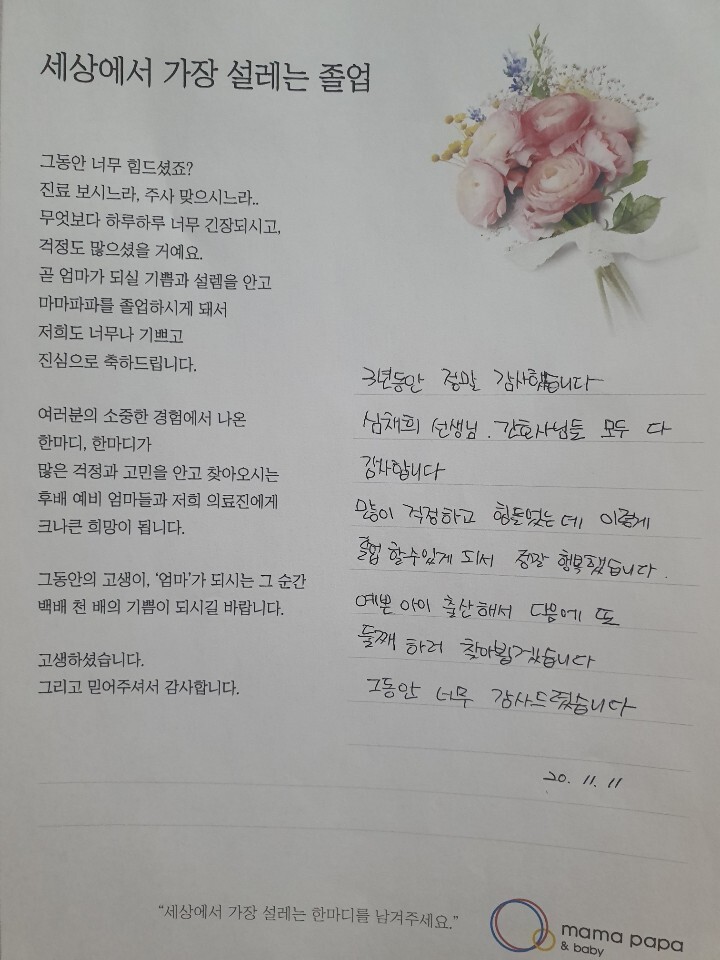 세상에서 가장 설레는 졸업
그동안 너무 힘드셨죠?
진료 보시느라, 주사 맞으시느라..
무엇보다 하루하루 너무 긴장되시고,
걱정도 많으셨을 거예요.
곧 엄마가 되실 기쁨과 설렘을 안고
마마파파를 졸업하시게 돼서
저희도 너무나 기쁘고
진심으로 축하드립니다.
여러분의 소중한 경험에서 나온
한마디, 한마디가
많은 걱정과 고민을 안고 찾아오시는
후배 예비 엄마들과 저희 의료진에게
크나큰 희망이 됩니다.
그동안의 고생이, '엄마'가 되시는 그 순간
백배 천 배의 기쁨이 되시길 바랍니다.
고생하셨습니다.
그리고 믿어주셔서 감사합니다.
3년동안 정말 감사했습니다
심채희 선생님. 간호사님들 모두 다
감사합니다
많이 걱정하고 힘들었는데 이렇게
졸업 할수있게 되서 정말 행복했습니다.
예쁜 아이 출산해서 다음에 또
둘째 하러 찾아뵙겠습니다
그동안 너무 감사드렸습니다
20. 11. 11
"세상에서 가장 설레는 한마디를 남겨주세요."
mama papa
& baby